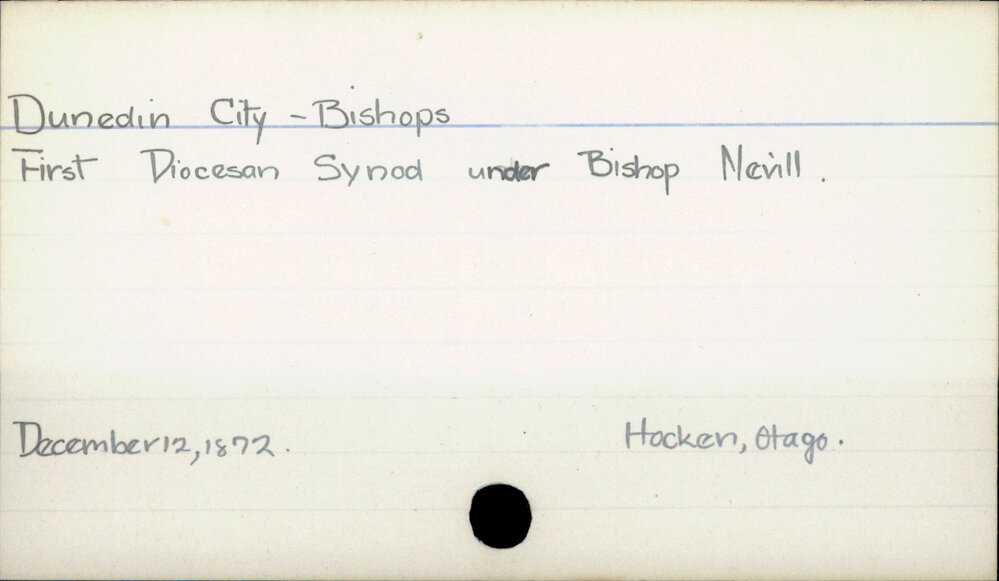 Dunedin City - Bishops
First Diocesan Synod under Bishop Nevill.
December 12, 1872.
Hocken, Otago.